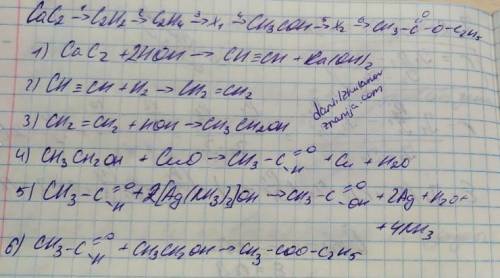 CaC₂ →¹ C₂H₂ →² C₂H₄ →³ X₁ →⁴ CH₃COH →⁵ X₂ →⁶ CH₃-C(=O)-O-C₂H₅
1) CaC₂ + 2HOH → CH≡CH + Ca(OH)₂
2) CH≡CH + H₂ → CH₂=CH₂
3) CH₂=CH₂ + HOH → CH₃CH₂OH
znanija.com
4) CH₃CH₂OH + CuO → CH₃-C(=O)H + Cu + H₂O
5) CH₃-C(=O)H + 2[Ag(NH₃)₂]OH → CH₃-C(=O)OH + 2Ag + H₂O +
+ 4NH₃
6) CH₃-C(=O)H + CH₃CH₂OH → CH₃-COO-C₂H₅